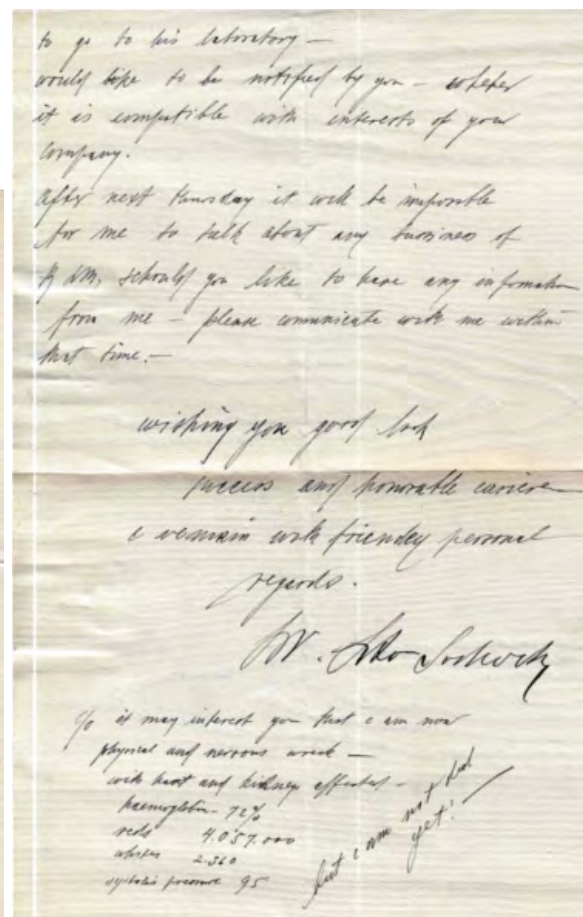 to go to his laboratory –
would like to be notified by you – wheter
it is compatible with interests of your
Company.
After next thursday it will be imposible
for me to talk about any business of
schould you like to have any information
from me – please comunicate with me within
that time. –
wishing you good lock
success and honorable cariere
I remain with friendly personal
regards.
Dr.
% it may interest you that I am now
physical and nervous wreck –
with heart and kidney affected –
haemoglobin 72%
reds 4.057.000
whites 2.360
systolic pressure 95
but I am not dead
yet! –